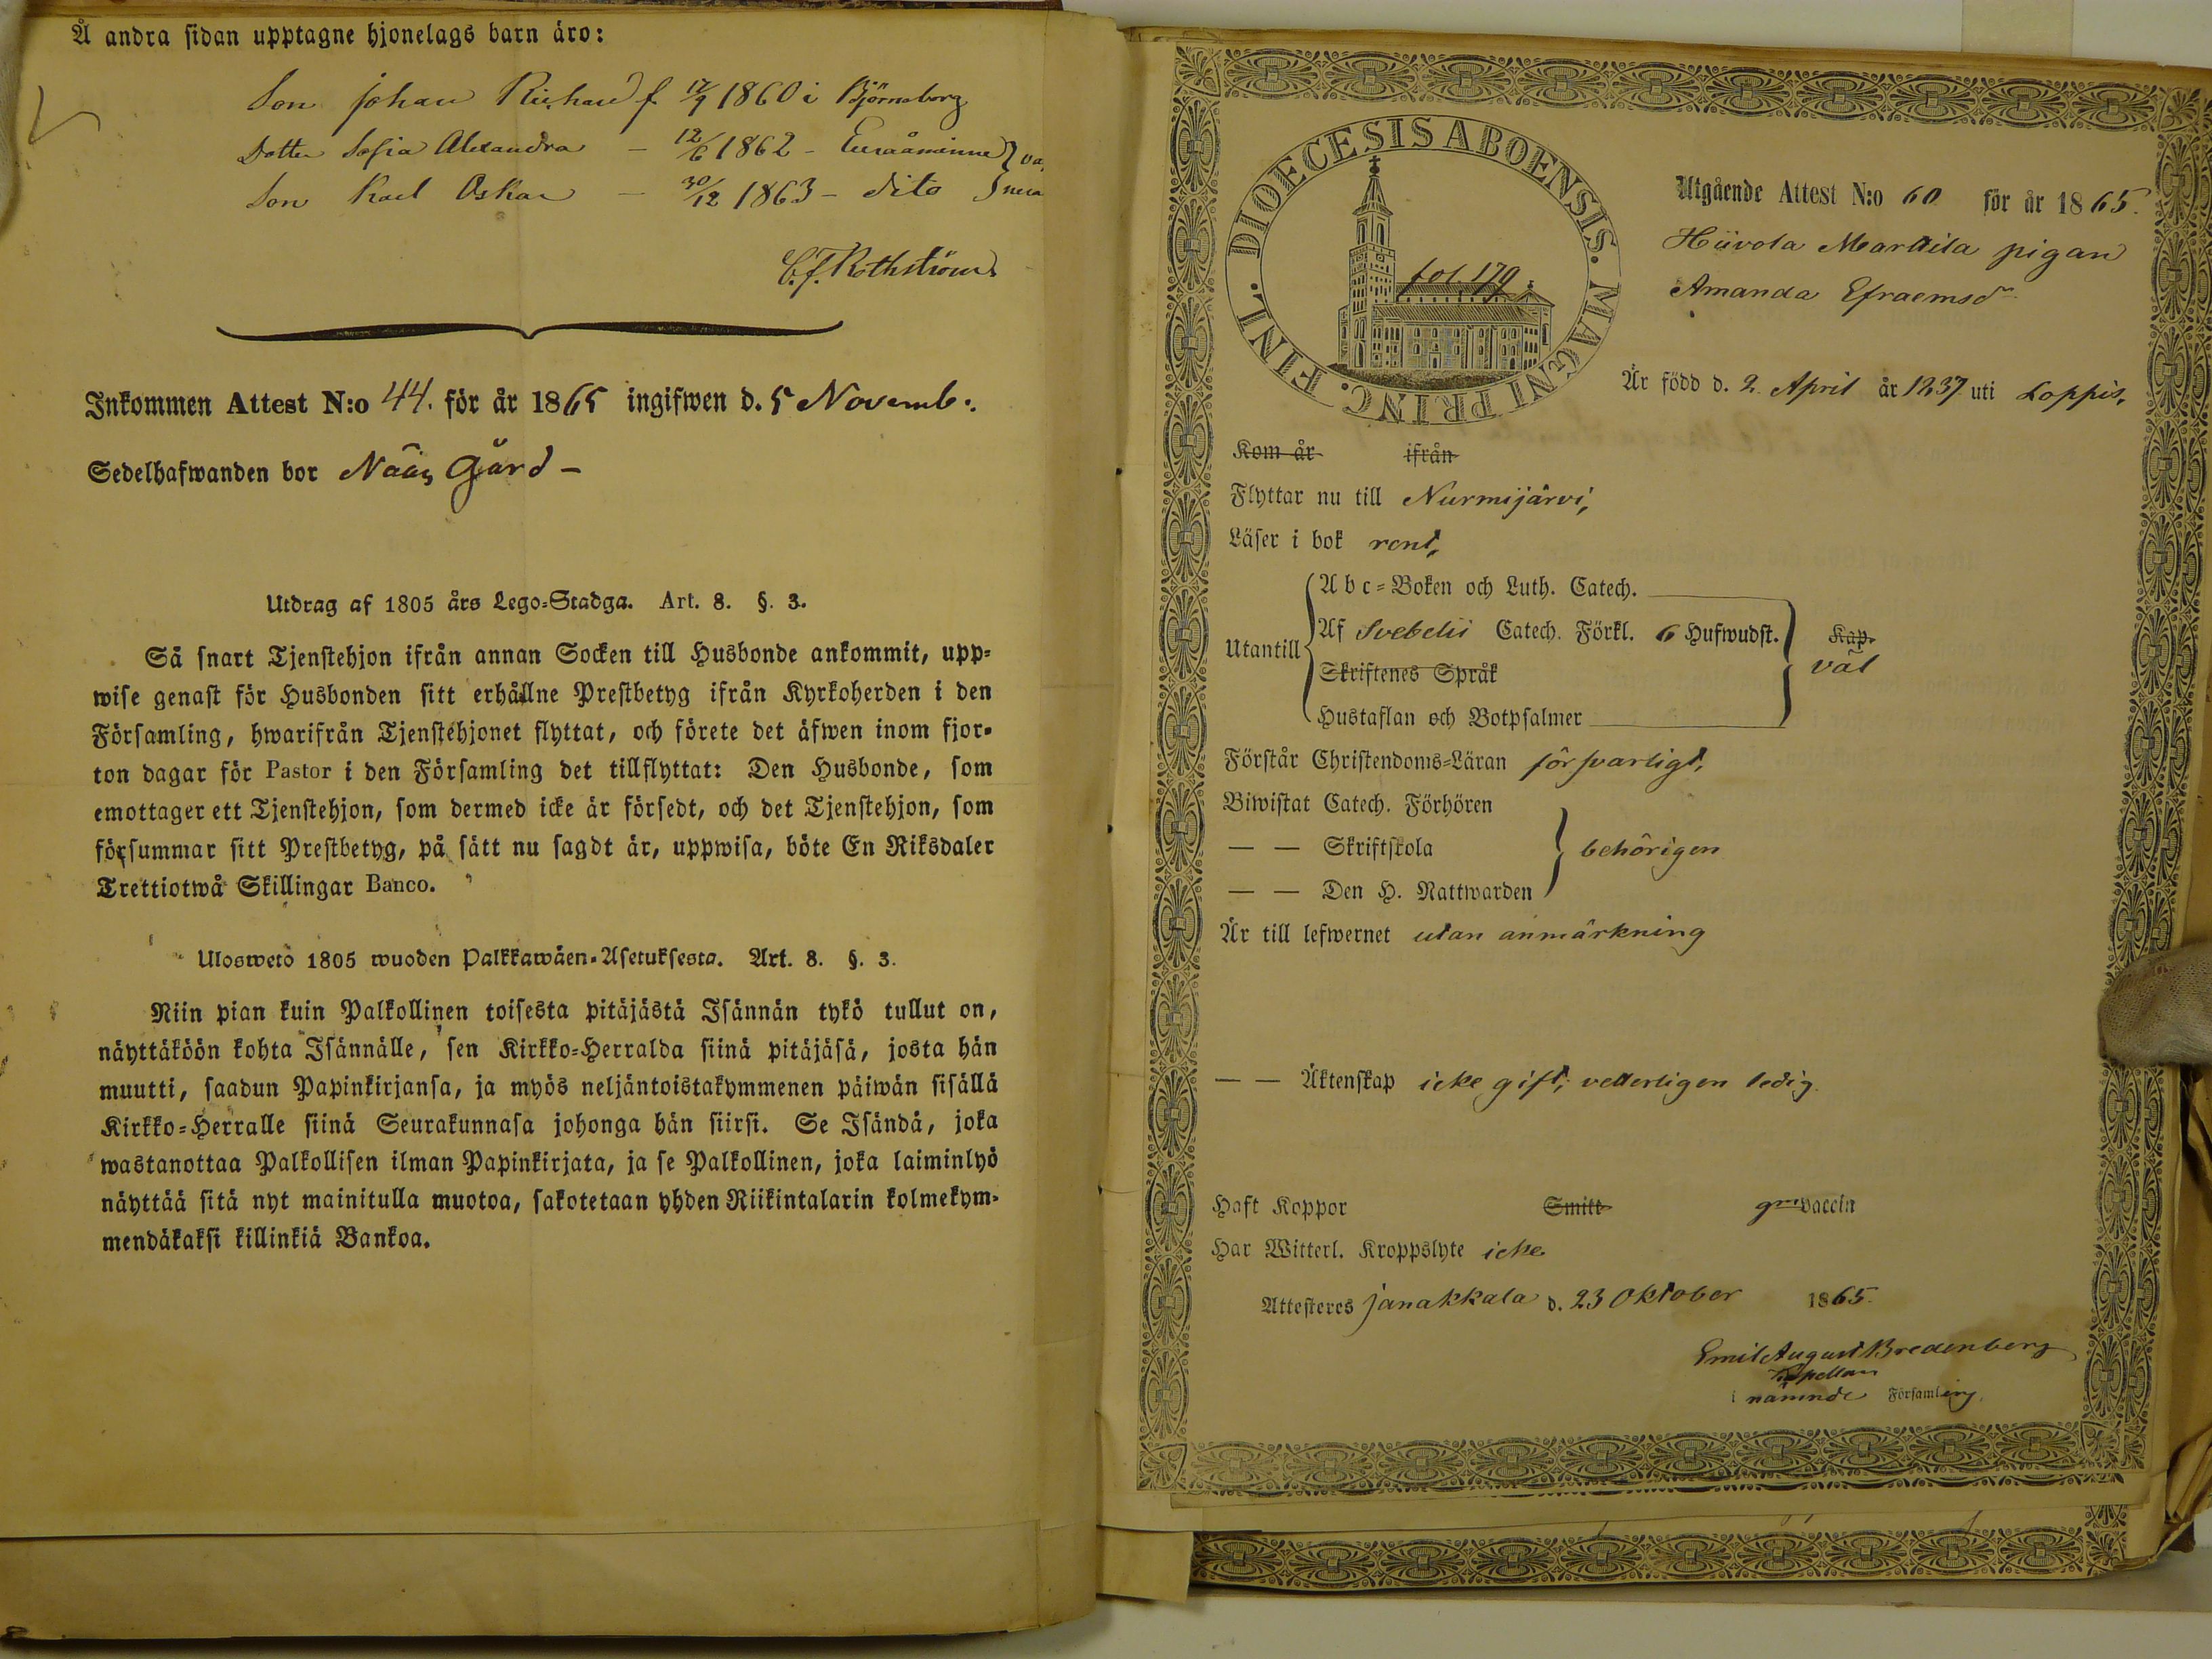 Å andra sidan upptagne hjonelags barn äro:
Son Johan Richard f. 17/9 1860 i Björneborg
Dotter Sofia Alexandra — 12/6 1862 – Euraåminne
Son Karl Oskar — 30/12 1863 – dito
C.f. Rothström
Inkommen Attest N:o 44. för år 1865 ingifwen d. 5 Novemb:.
Sedelhafwanden bor Nääs Gård –
Utdrag af 1805 års Lego-Stadga. Art. 8. §. 3.
Så snart Tjenstehjon ifrån annan Socken till Husbonde ankommit, upp-
wise genast för Husbonden sitt erhållne Prestbetyg ifrån Kyrkoherden i den
Församling, hwarifrån Tjenstehjonet flyttat, och förete det äfwen inom fjor-
ton dagar för Pastor i den Församling det tillflyttat: Den Husbonde, som
emottager ett Tjenstehjon, som dermed icke är försedt, och det Tjenstehjon, som
försummar sitt Prestbetyg, på sätt nu sagdt är, uppwisa, böte En Riksdaler
Trettiotwå Skillingar Banco.
Uloswetö 1805 wuoden Palkkawäen-Asetuksesta. Art. 8. §. 3.
Niin pian kuin Palkollinen toisesta pitäjästä Isännän tykö tullut on,
näyttäköön kohta Isännälle, sen Kirkko-Herralda siinä pitäjäsä, josta hän
muutti, saadun Papinkirjansa, ja myös neljäntoistakymmenen päiwän sisällä
Kirkko-Herralle siinä Seurakunnasa johonga hän siirsi. Se Isändä, joka
wastanottaa Palkollisen ilman Papinkirjata, ja se Palkollinen, joka laiminlyö
näyttää sitä nyt mainitulla muotoa, sakotetaan yhden Riikintalarin kolmekym-
mendäkaksi killinkiä Bankoa.
DIOECESIS ABOENSIS. MAGNI PRINC. FINL.
fol. 179
Utgående Attest N:o 60 för år 1865.
Hiivola Marttila pigan
Amanda Efraemsdr
Är född d. 2. April år 1837 uti Loppis,
Kom år ifrån
Flyttar nu till Nurmijärvi,
Läser i bok rent,
Utantill
A b c-Boken och Luth. Catech.
Af Svebelii Catech. Förkl. 6 Hufwudst. Kap.
Skriftenes Språk väl
Hustaflan och Botpsalmer
Förstår Christendoms-Läran försvarligt,
Biwistat Catech. Förhören
— — Skriftskola behörigen
— — Den H. Nattwarden
Är till lefwernet utan anmärkning
— — Äktenskap icke gift; vetterligen ledig.
Haft Koppor Smitt gm vaccin
Har Witterl. Kroppslyte icke
Attesteres Janakkala d. 23 Oktober 1865.
Emil August Bredenberg
Kapellan
i nämnde Församling.